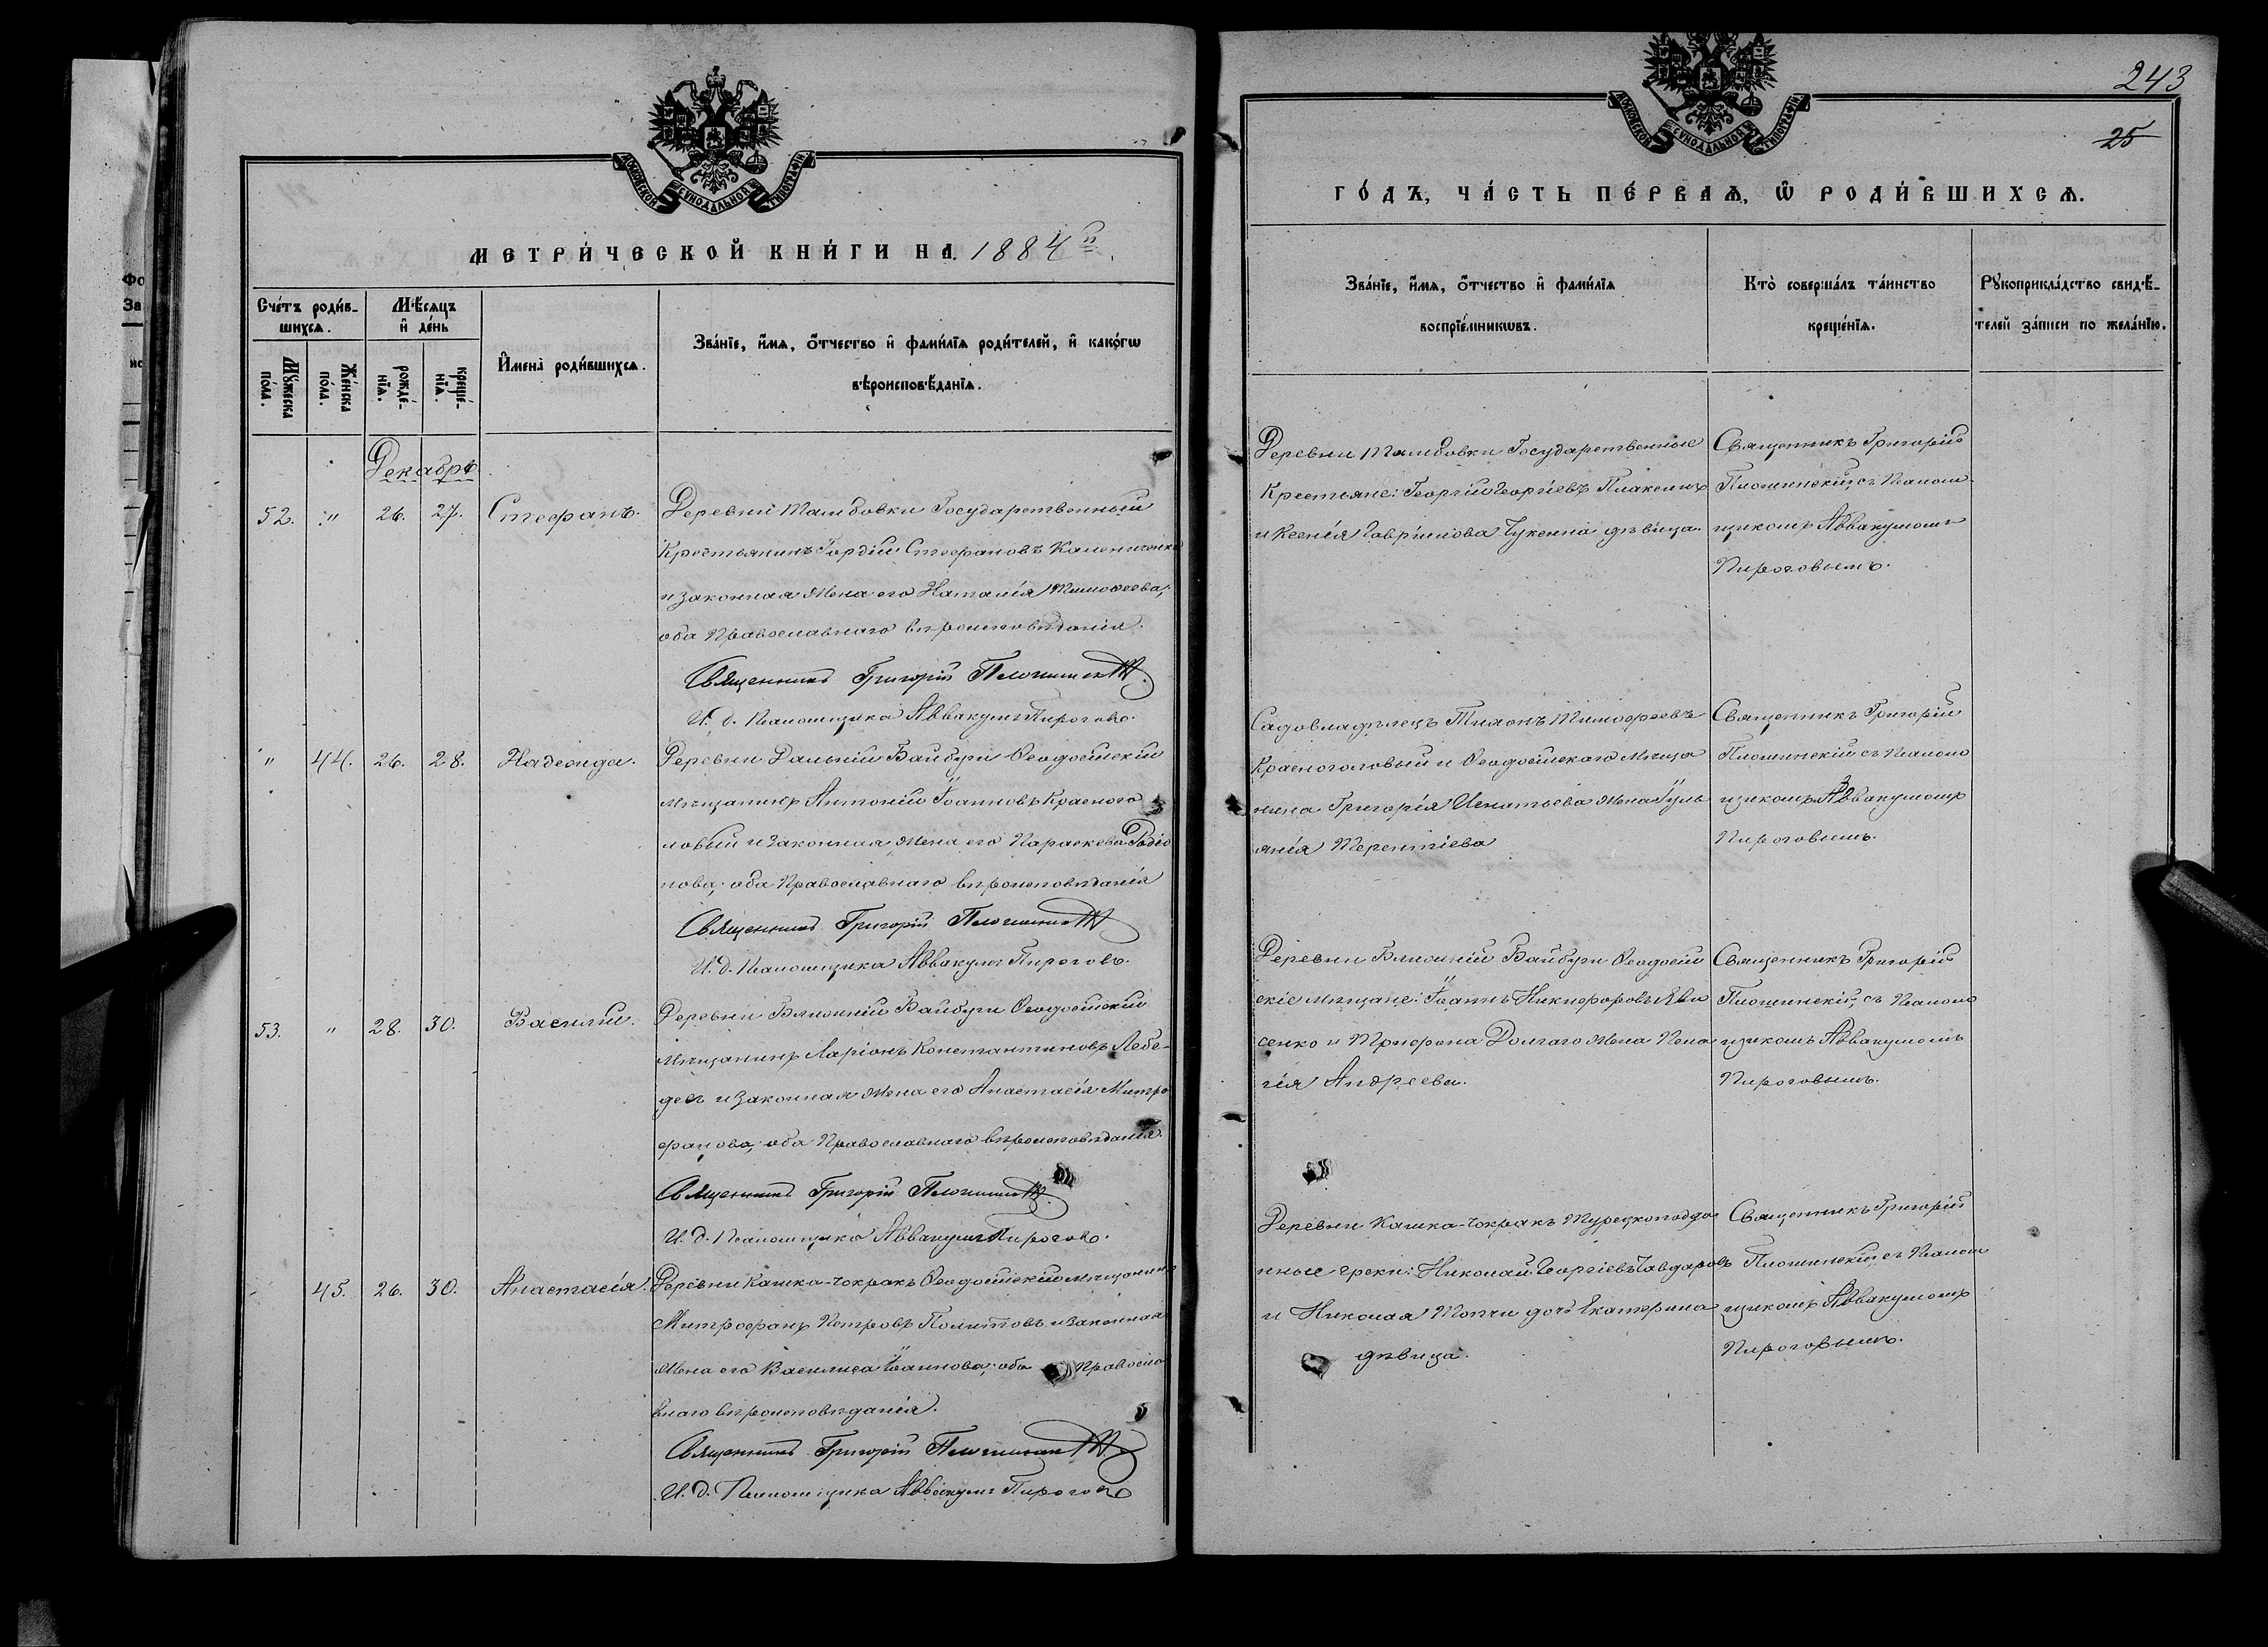 МОСКОВСКОЙ СѴНОДАЛЬНОЙ ТИПОГРАФІИ
МЕТРИ́ЧЕСКОЙ КНИ́ГИ НА 1884й
Сче́тъ роди́в-
шихся.
Мѣ́сяцъ
и҆ де́нь
Мꙋ́жеска
по́ла.
Же́нска
по́ла.
рожде́-
нїя.
креще́-
нїя.
И҆мена̀ роди́вшихся.
Зва́нїе, и҆́мя, ѻ҆́тчество и҆ фами́лїя роди́телей, и҆ како́гѡ
вѣроисповѣ́данїя.
Декабрь
52. " 26. 27. Стефанъ.
Деревни Тамбовки Государственный
Крестьянинъ Гордій Стефановъ
и законная жена его Наталія Тимоѳеева,
оба Православнаго вѣроисповѣданія.
Священникъ Григорій Плошинскій
И. д. Псаломщика Аввакумъ Пироговъ.
" 44. 26. 28. Надежда.
Деревни Дальній Байбуги Ѳеодосійскій
мѣщанинъ Антоній Іоанновъ Красного
ловый и законная жена его Параскева Родіо
нова; оба Православнаго вѣроисповѣданія
Священникъ Григорій Плошинскій
И. д. Псаломщика Аввакумъ Пироговъ.
53. " 28. 30. Василій.
Деревни Ближній Байбуги Ѳеодосійскій
Мѣщанинъ Ларіонъ Константиновъ Лебе-
дев и законная жена его Анастасія Митро
фанова; оба Православнаго вѣроисповѣданія.
Священникъ Григорій Плошинскій
И. д. Псаломщика Аввакумъ Пироговъ.
45. 26. 30. Анастасія.
Деревни Кашка-чокракъ Ѳеодосійскій мѣщанинъ
Митрофанъ Петровъ Политовъ и законная
жена его Василиса Іоаннова; оба Правосла
внаго вѣроисповѣданія.
Священникъ Григорій Плошинскій
И. д. Псаломщика Аввакумъ Пироговъ
243
25
МОСКОВСКОЙ СѴНОДАЛЬНОЙ ТИПОГРАФІИ
ГО́ДЪ, ЧА́СТЬ ПЕ́РВАѦ, Ѽ РОДИ́ВШИХСѦ.
Зва́нїе, и҆́мя, ѻ҆́тчество и҆ фами́лїя
воспрїе́мникѡвъ.
Кто̀ соверша́лъ та́инство
креще́нїя.
Рꙋкоприкла́дство свидѣ́-
телей за́писи по жела́нїю.
Деревни Тамбовки Государственные
Крестьяне: Георгій Георгіевъ Плаксинъ
и Ксенія Гаврилова дѣвица.
Священникъ Григорій
Плошинскій, съ Псалом
щикомъ Аввакумомъ
Пироговымъ.
Садовладѣлецъ Тихонъ Тимофеевъ
Красноголовый и Ѳеодосійскаго мѣща
нина Григорія Игнатьева жена Іуль
янія Терентіева
Священникъ Григорій
Плошинскій съ Псалом
щикомъ Аввакумомъ
Пироговымъ.
Деревни Ближній Байбуги Ѳеодосій
скіе мѣщане: Іоаннъ Никифоровъ
сенко и Трифона Долгаго жена Пела
гія Андреева.
Священникъ Григорій
Плошинскій, съ Псалом
щикомъ Аввакумомъ
Пироговымъ.
Деревни Кашка-чокракъ Турецкоподдан
нные греки: Николай Георгіевъ Чавдаровъ
и Николая Топчи дочь Екатерина
дѣвица.
Священникъ Григорій
Плошинскій съ Псалом
щикомъ Аввакумомъ
Пироговымъ.